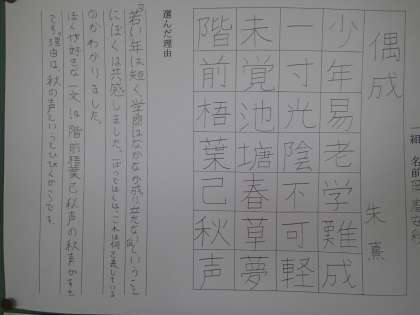 一組 名前
偶成
朱熹
少年易老学難成
一寸光陰不可軽
未覚池塘春草夢
階前梧葉己秋声
選んだ理由
若い年は短く、学問はなかなか成り立たないということ
にぼくは共感しました。
のかわりました。
ぼくが好きな一文は階前梧葉己秋声の秋声がすき
です。理由は、秋の声という